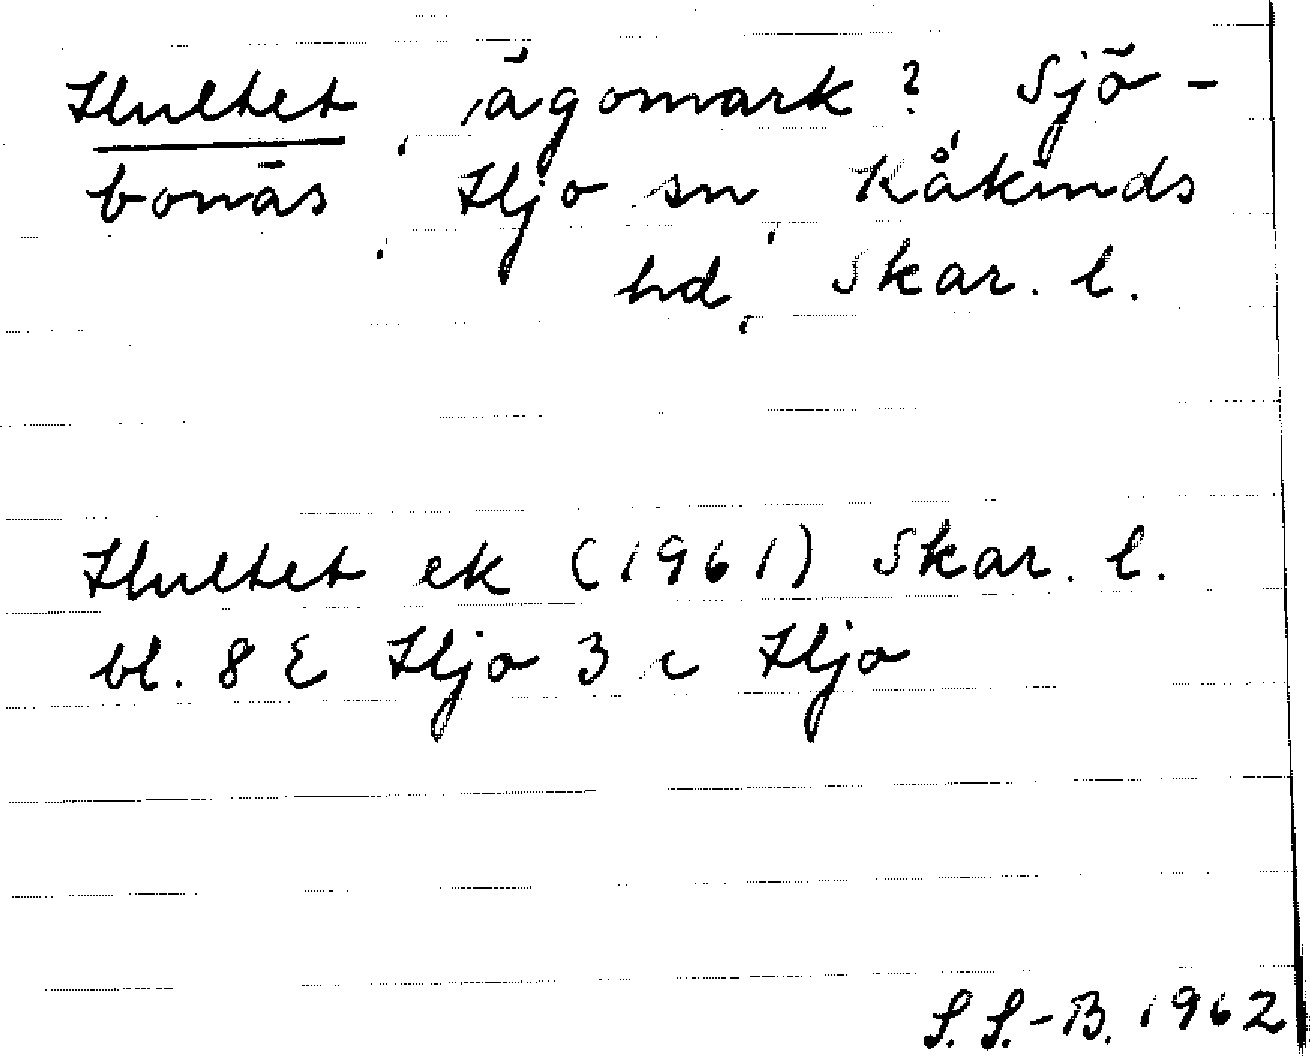 Hultet, ägomark? Sjö-
bonäs, Hjo sn, Kåkinds
hd, Skar. l.
Hultet ek (1961) Skar. l.
bl. 8 E Hjo 3 c Hjo
S. S.-B. 1962